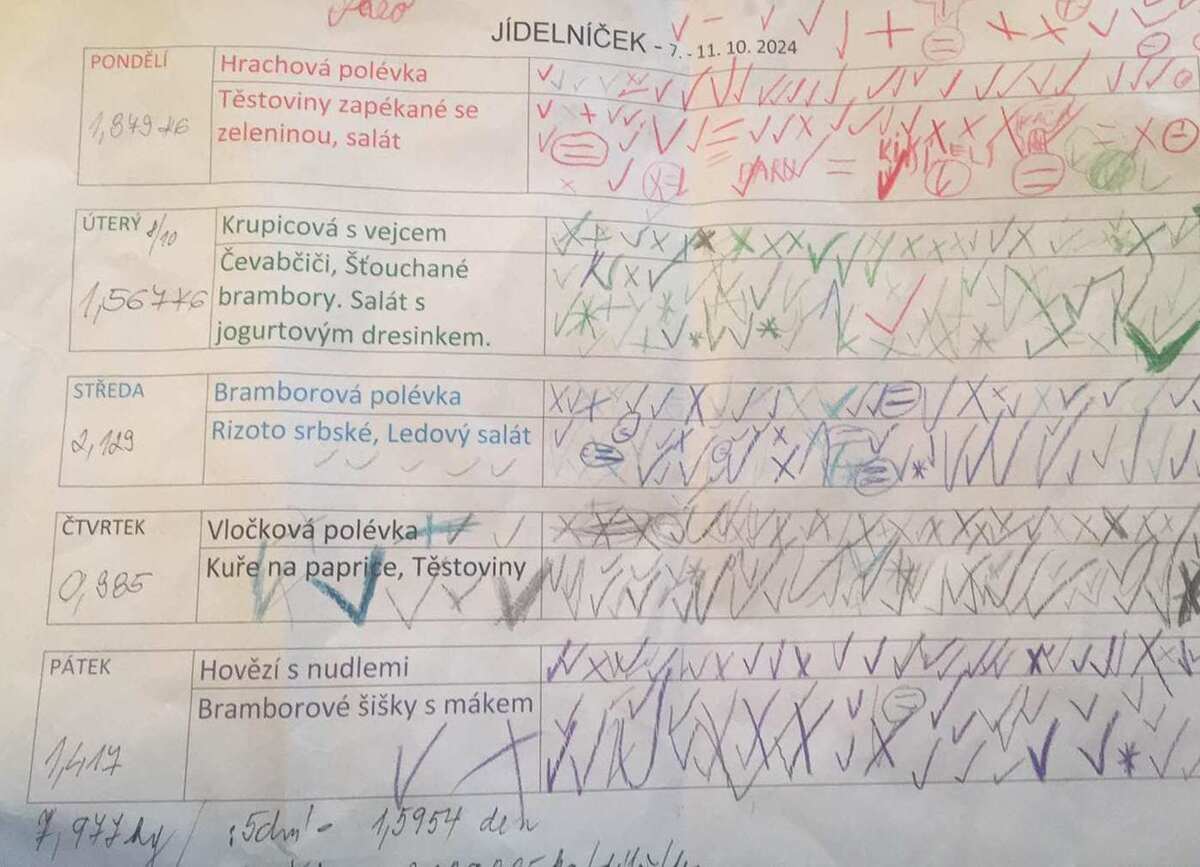 JÍDELNÍČEK - 7. - 11. 10. 2024
PONDĚLÍ
Hrachová polévka
1,879
Těstoviny zapékané se
zeleninou, salát
ÚTERÝ 8/10
Krupicová s vejcem
1,567
Čevabčiči, Šťouchané
brambory. Salát s
jogurtovým dresinkem.
STŘEDA
Bramborová polévka
2,129
Rizoto srbské, Ledový salát
ČTVRTEK
Vločková polévka
0,985
Kuře na paprice, Těstoviny
PÁTEK
Hovězí s nudlemi
1,417
Bramborové šišky s mákem
7,977 kg / :5dní - 1,5954 den